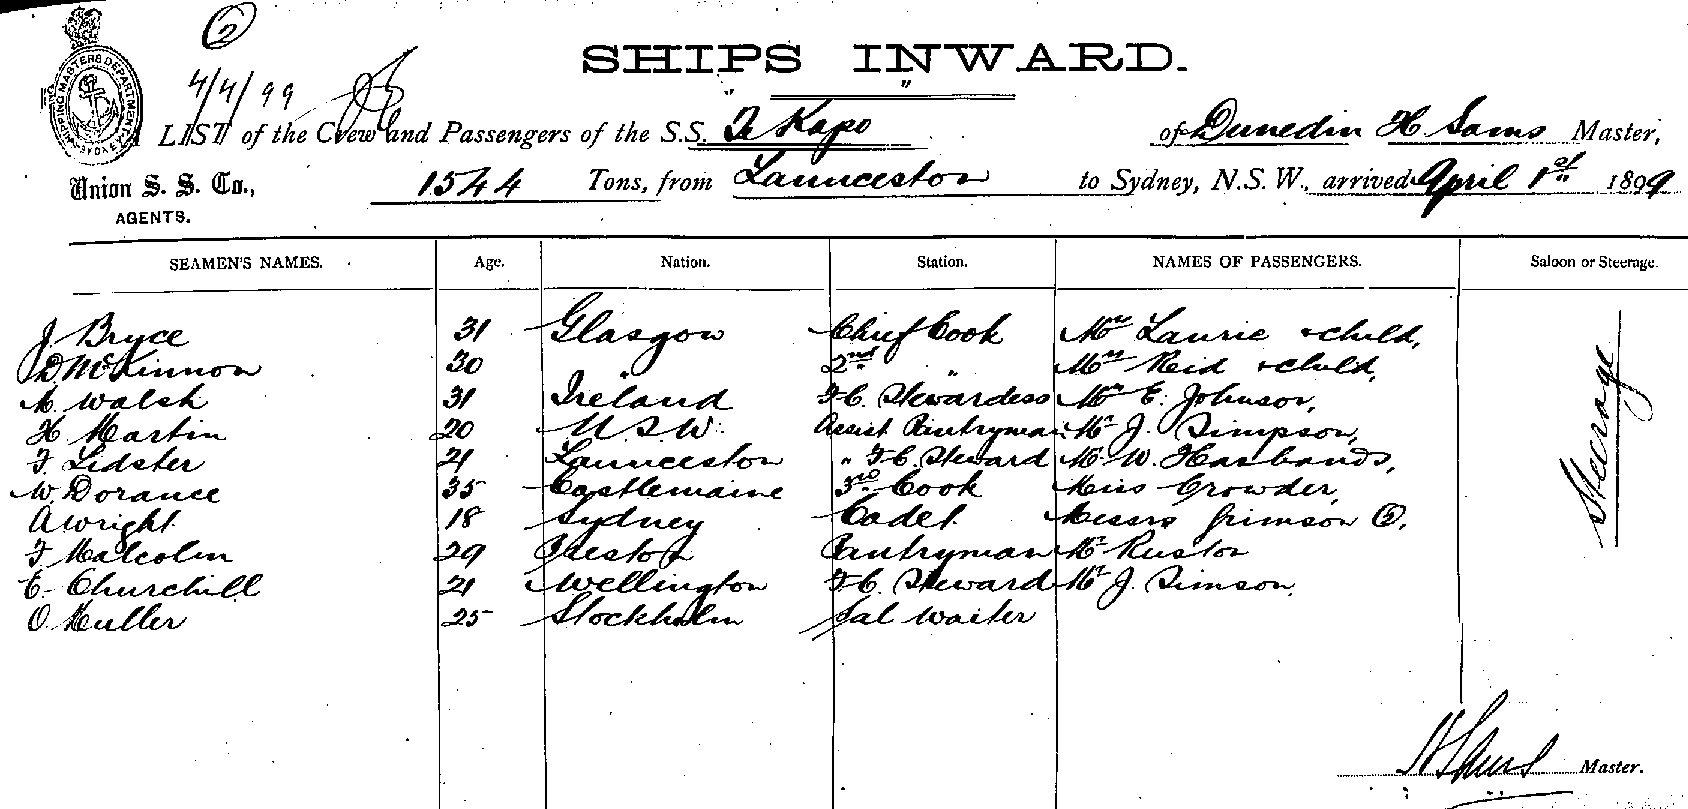 2
4/4/99
SHIPPING MASTERS DEPARTMENT SYDNEY
SHIPS INWARD.
A LIST of the Crew and Passengers of the S.S. Te Kapo of Dunedin H Sams Master,
Union S. S. Co., 1544 Tons, from Launceston to Sydney, N.S.W., arrived April 1st 1899
AGENTS.
SEAMEN'S NAMES. Age. Nation. Station. NAMES OF PASSENGERS. Saloon or Steerage.
J Bryce 31 Glasgow Chief Cook Mrs Laurie & child,
D McKinnon 30 " 2nd " Mrs Reid & child,
M. Walsh 31 Ireland F.C. Stewardess Mrs E. Johnson,
H Martin 20 N.S.W. Assist Pantryman Mr J. Simpson,
F. Lidster 21 Launceston " F.C. Steward Mr W. Hasbands,
W. Dorance 35 Castlemaine 3rd Cook Miss Crowder,
A Wright 18 Sydney Cadet. Messrs Grimson
F Malcolm 29 Preston Pantryman Mr Ruston
E. Churchill 21 Wellington F.C. Steward Mr J. Simson,
O. Muller 25 Stockholm Sal Waiter
Steerage
H Sams Master.